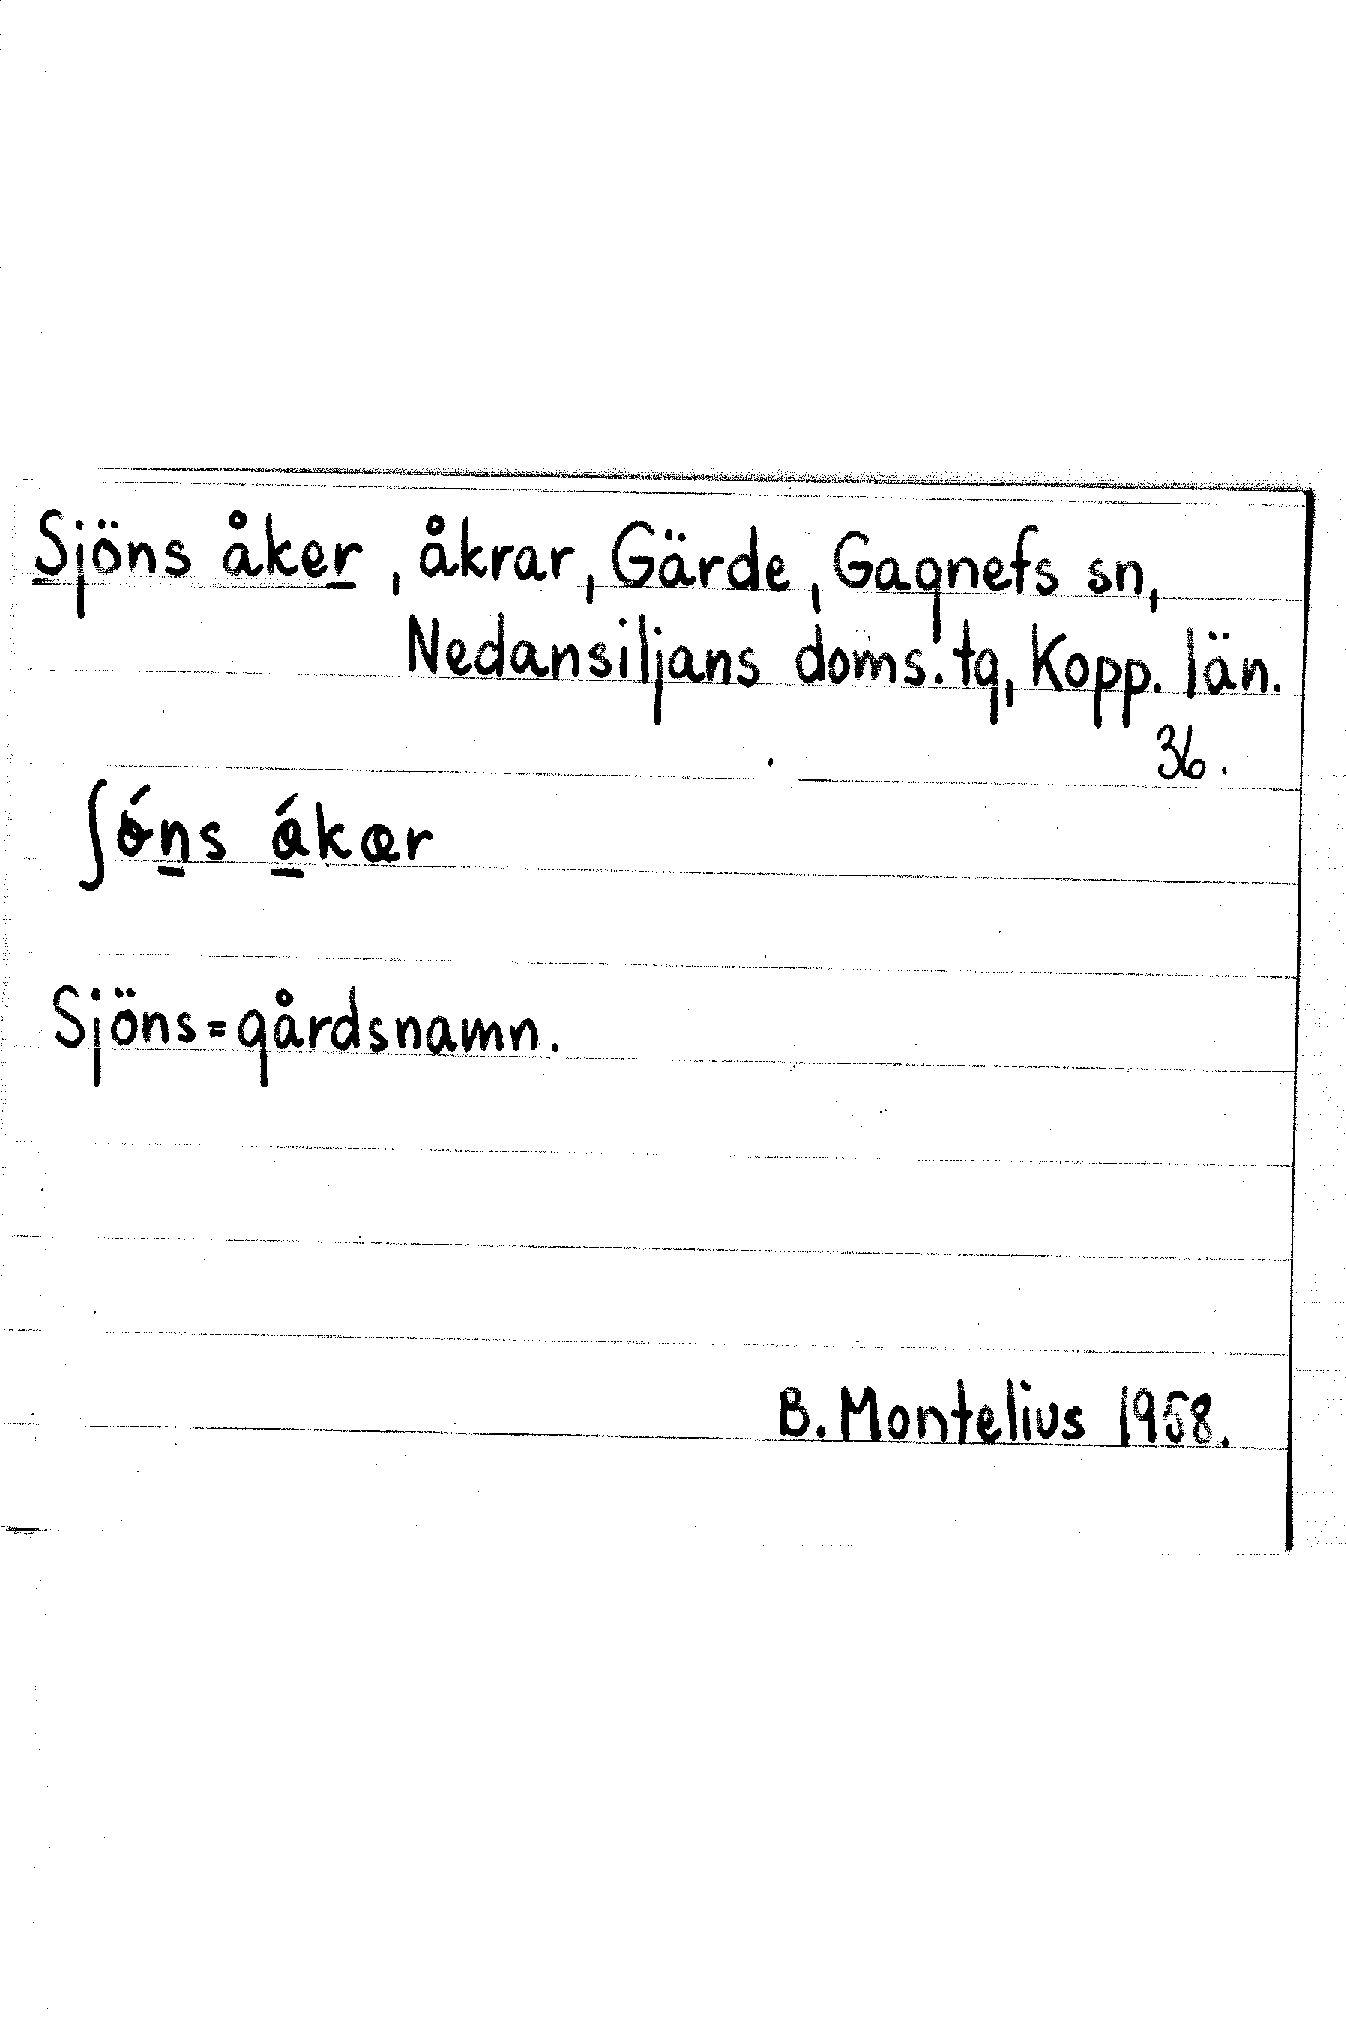 Sjöns åker, åkrar, Gärde, Gagnefs sn,
Nedansiljans doms. tg, Kopp. län.
36.
ʃɵ́ns ákær
Sjöns=gårdsnamn.
B. Montelius 1958.